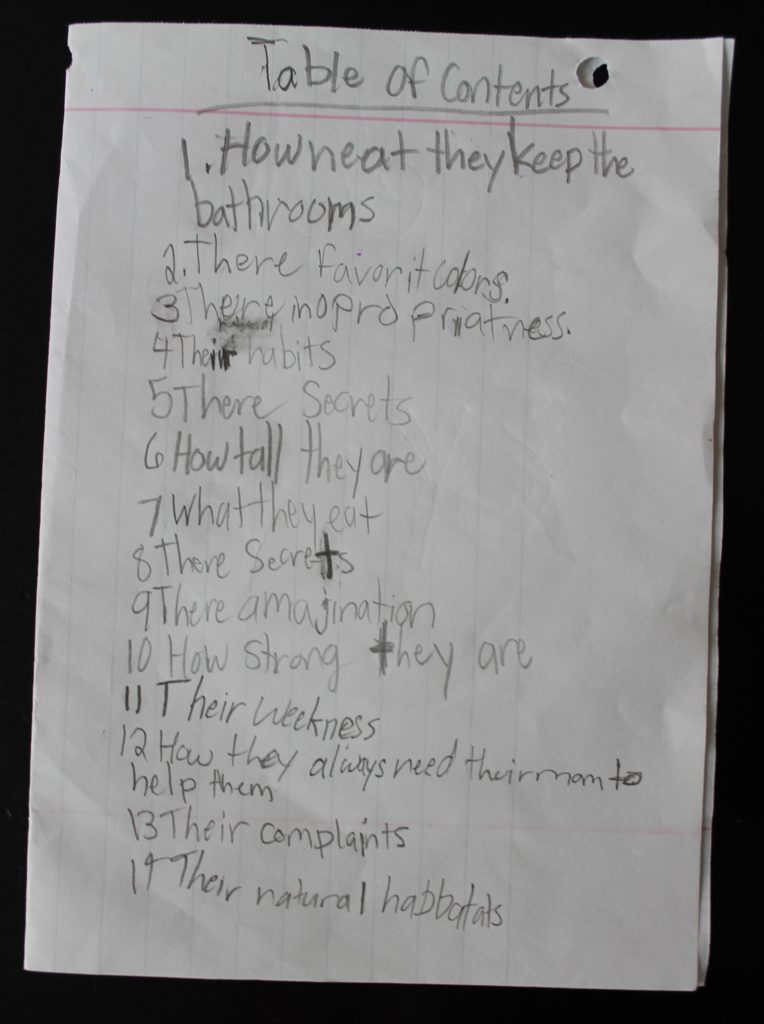 Table of Contents
1. How neat they keep the
bathrooms
2. There favorit colors.
3 There inopro priatness.
4 Their habits
5 There Secrets
6 How tall they are
7 what they eat
8 There Secrets
9 There amajination
10 How Strong they are
11 Their weekness
12 How they always need their mom to
help them
13 Their complaints
14 Their natural habbatats